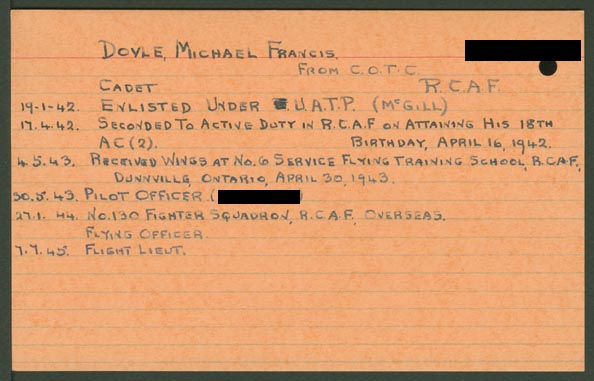 DOYLE, MICHAEL FRANCIS.
FROM C.O.T.C.
CADET R.C.A.F.
19-1-42. ENLISTED UNDER U.A.T.P. (McGILL)
17.4.42. SECONDED TO ACTIVE DUTY IN R.C.A.F ON ATTAINING HIS 18TH
AC(2). BIRTHDAY, APRIL 16, 1942.
4.5.43. RECEIVED WINGS AT NO.6 SERVICE FLYING TRAINING SCHOOL, R.C.A.F,
DUNNVILLE, ONTARIO, APRIL 30, 1943.
30.5.43. PILOT OFFICER (
27.1.44. NO.130 FIGHTER SQUADRON, R.C.A.F. OVERSEAS.
FLYING OFFICER.
7.7.45. FLIGHT LIEUT.